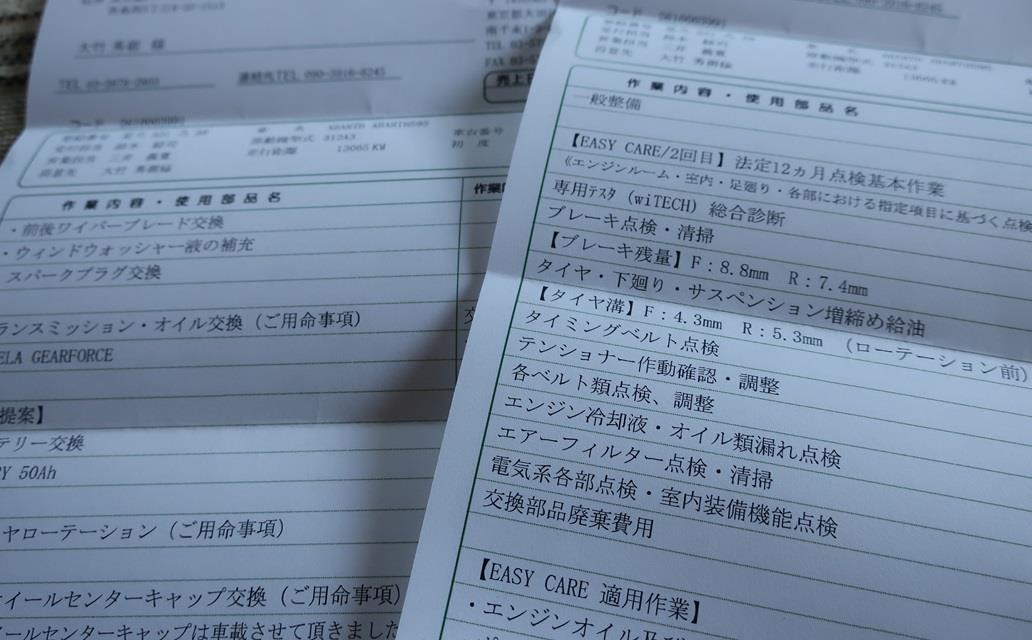 大竹 秀樹 様
コード
車 名 ABARTH ABARTH595
車台番号
原動機型式 312A3
初 度
走行距離 13065 KM
作業内容・使用部品名
・前後ワイパーブレード交換
・ウィンドウォッシャー液の補充
スパークプラグ交換
ランスミッション・オイル交換（ご用命事項）
ELA GEARFORCE
提案】
テリー交換
RY 50Ah
ヤローテーション（ご用命事項）
イールセンターキャップ交換（ご用命事項）
ールセンターキャップは車載させて頂きました
作業内容・使用部品名
一般整備
【EASY CARE/2回目】法定12ヵ月点検基本作業
《エンジンルーム・室内・足廻り・各部における指定項目に基づく点検
専用ﾃｽﾀ (wiTECH) 総合診断
ブレーキ点検・清掃
【ブレーキ残量】F：8.8mm R：7.4mm
タイヤ・下廻り・サスペンション増締め給油
【タイヤ溝】F：4.3mm R：5.3mm （ローテーション前）
タイミングベルト点検
テンショナー作動確認・調整
各ベルト類点検、調整
エンジン冷却液・オイル類漏れ点検
エアーフィルター点検・清掃
電気系各部点検・室内装備機能点検
交換部品廃棄費用
【EASY CARE 適用作業】
・エンジンオイル及